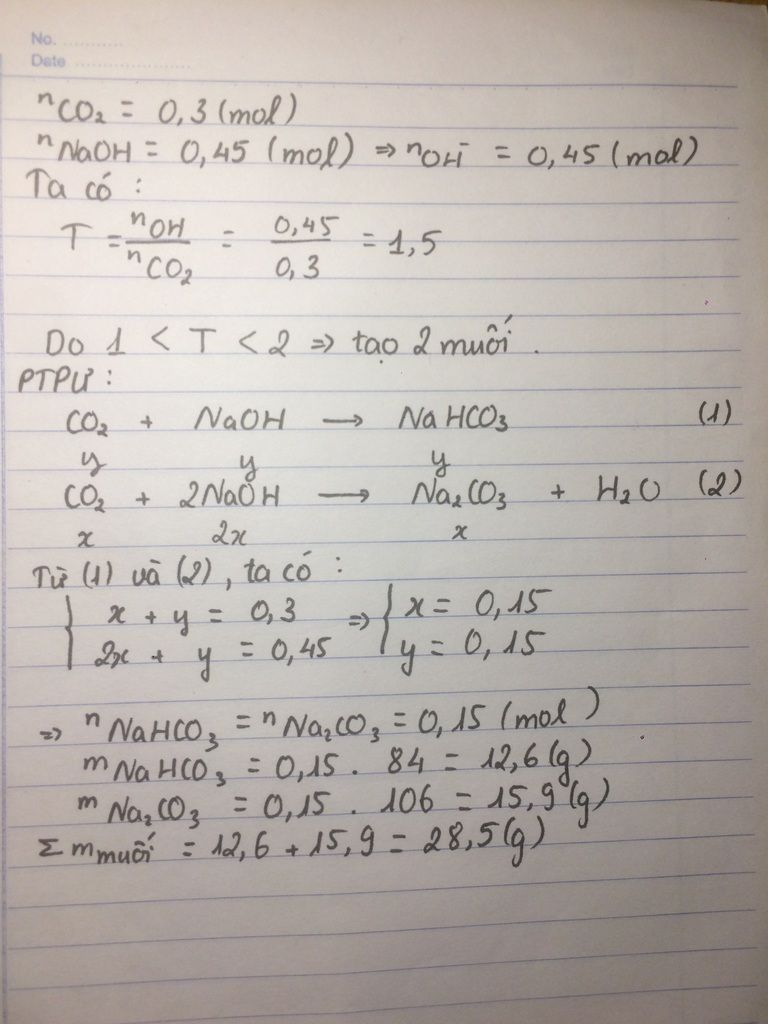 No. ............
Date ......................
nCO₂ = 0,3 (mol)
nNaOH = 0,45 (mol) => nOH⁻ = 0,45 (mol)
Ta có :
T = nOH / nCO₂ = 0,45 / 0,3 = 1,5
Do 1 < T < 2 => tạo 2 muối .
PTPƯ :
CO₂ + NaOH → NaHCO₃ (1)
y y y
CO₂ + 2NaOH → Na₂CO₃ + H₂O (2)
x 2x x
Từ (1) và (2) , ta có :
{ x + y = 0,3 => { x = 0,15
2x + y = 0,45 y = 0,15
=> nNaHCO₃ = nNa₂CO₃ = 0,15 (mol)
mNaHCO₃ = 0,15 . 84 = 12,6 (g)
mNa₂CO₃ = 0,15 . 106 = 15,9 (g)
Σ mmuối = 12,6 + 15,9 = 28,5 (g)